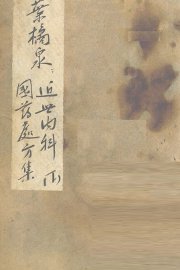 葉橘泉：
近世内科
國药處方集